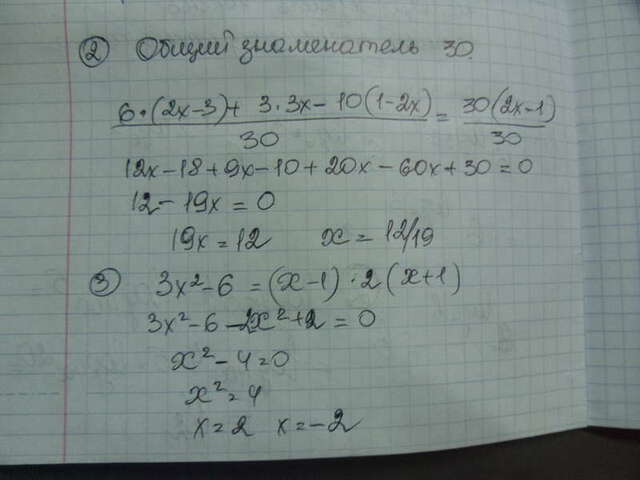 ② Общий знаменатель 30.
6·(2x-3)+ 3·3x - 10(1-2x) / 30 = 30(2x-1) / 30
12x-18+9x-10+20x-60x+30=0
12-19x=0
19x=12 x=12/19
③ 3x²-6 =(x-1)·2(x+1)
3x²-6-2x²+2=0
x²-4=0
x²=4
x=2 x=-2